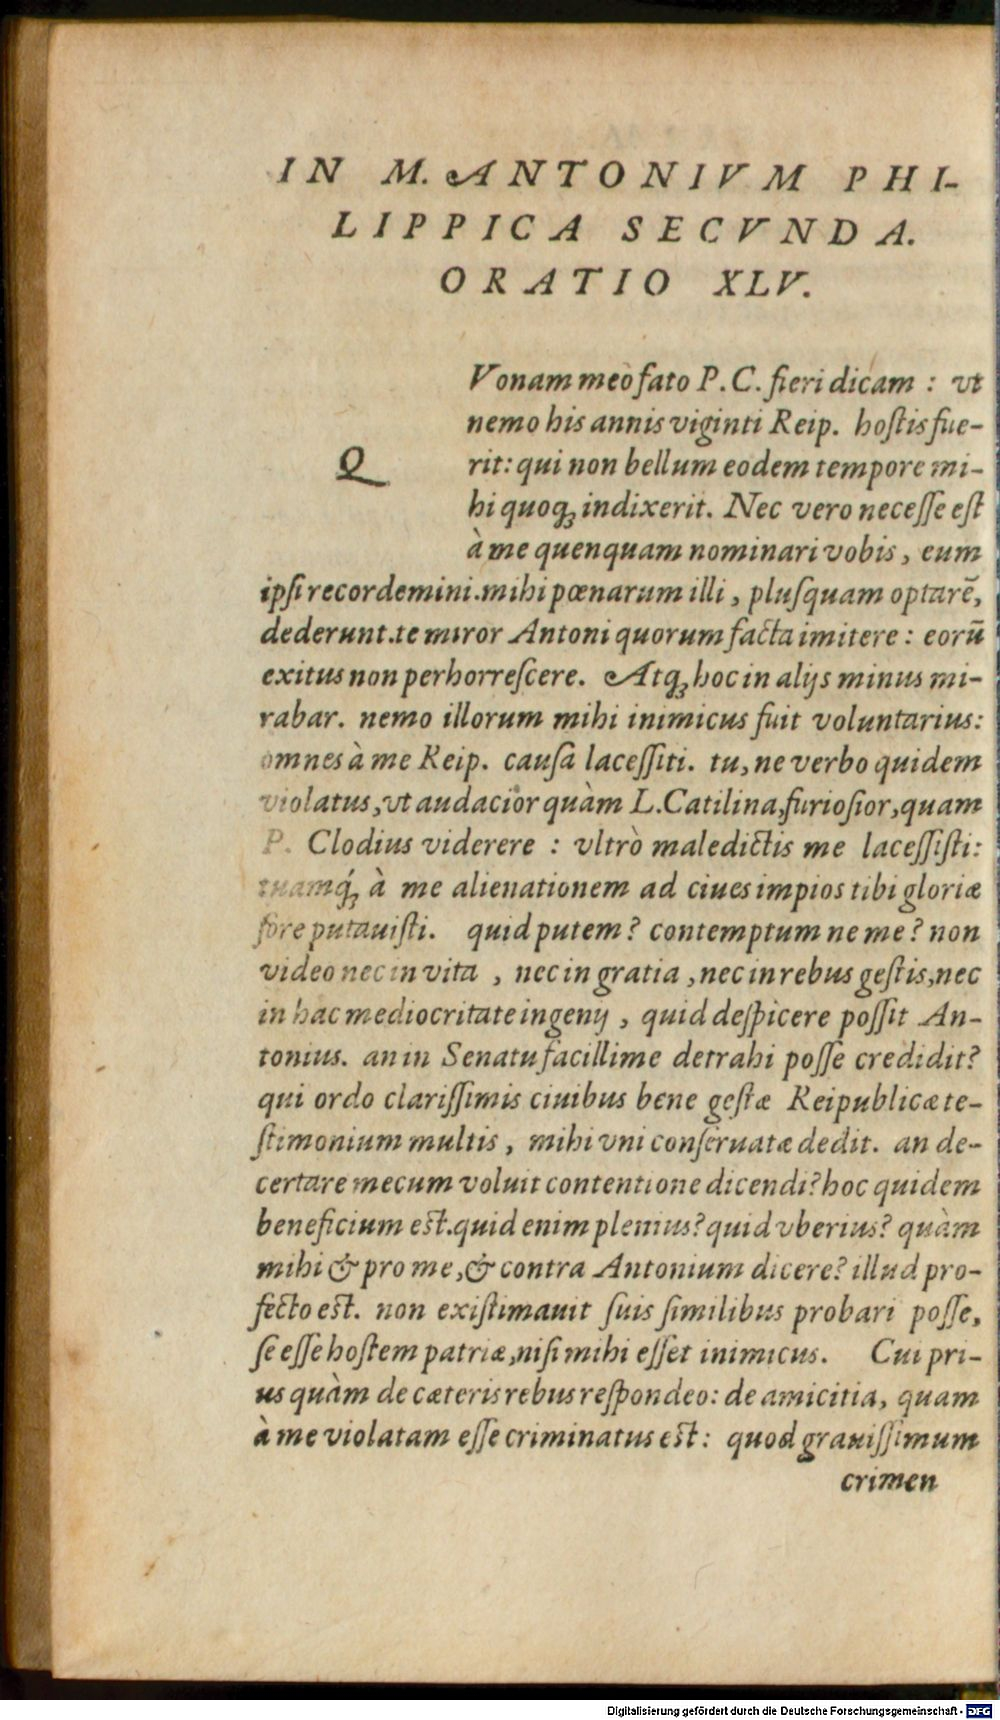 IN M. ANTONIVM PHI-
LIPPICA SECVNDA.
ORATIO XLV.
Q
Vonam meo fato P. C. fieri dicam : vt
nemo his annis viginti Reip. hoſtis fue-
rit: qui non bellum eodem tempore mi-
hi quoqꝫ indixerit. Nec vero neceſſe eſt
à me quenquam nominari vobis, eum
ipſi recordemini. mihi pœnarum illi, pluſquam optarẽ,
dederunt. te miror Antoni quorum facta imitere : eorũ
exitus non perhorreſcere. Atqꝫ hoc in alijs minus mi-
rabar. nemo illorum mihi inimicus fuit voluntarius:
omnes à me Reip. cauſa laceſſiti. tu, ne verbo quidem
violatus, vt audacior quàm L. Catilina, furioſior, quam
P. Clodius viderere : vltrò maledictis me laceſſiſti:
tuamq́ꝫ à me alienationem ad ciues impios tibi gloriæ
fore putauiſti. quid putem? contemptum ne me? non
video nec in vita, nec in gratia, nec in rebus geſtis, nec
in hac mediocritate ingenij, quid deſpicere poſſit An-
tonius. an in Senatu facillime detrahi poſſe credidit?
qui ordo clariſſimis ciuibus bene geſtæ Reipublicæ te-
ſtimonium multis, mihi vni conſeruatæ dedit. an de-
certare mecum voluit contentione dicendi? hoc quidem
beneficium eſt. quid enim plenius? quid vberius? quàm
mihi & pro me, & contra Antonium dicere? illud pro-
fecto eſt. non exiſtimauit ſuis ſimilibus probari poſſe,
ſe eſſe hoſtem patriæ, niſi mihi eſſet inimicus. Cui pri-
us quàm de cæteris rebus reſpondeo: de amicitia, quam
à me violatam eſſe criminatus eſt: quod grauiſſimum
crimen
Digitalisierung gefördert durch die Deutsche Forschungsgemeinschaft - DFG